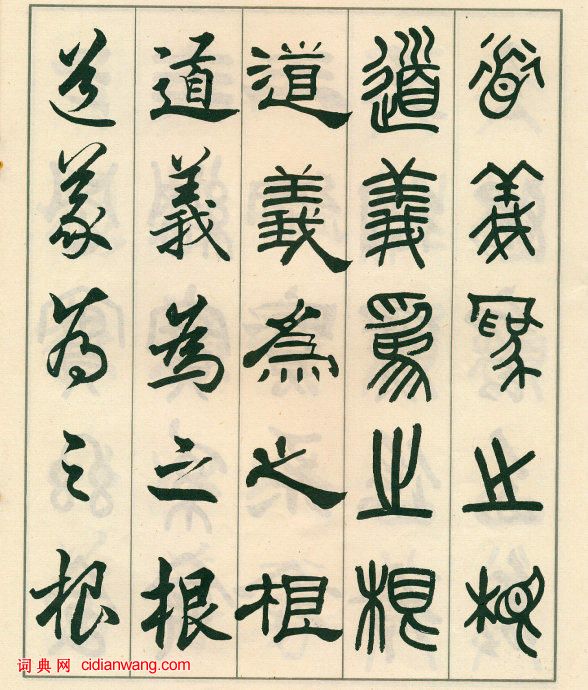 道義為之根
道義為之根
道義為之根
道義為之根
道義為之根
词典网 cidianwang.com